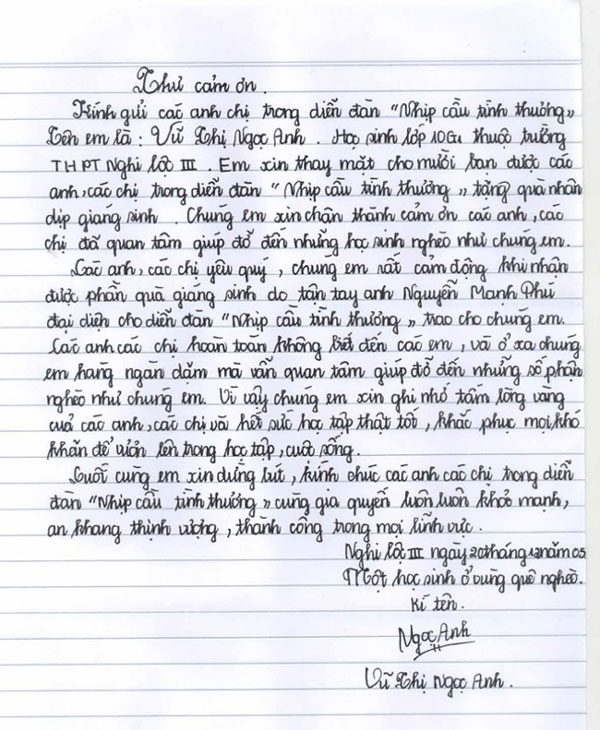 Thư cảm ơn.
Kính gửi các anh chị trong diễn đàn "Nhịp cầu tình thương"
Tên em là : Vũ Thị Ngọc Anh. Học sinh lớp 10G1 thuộc trường
THPT Nghi lộc III. Em xin thay mặt cho mười bạn được các
anh, các chị trong diễn đàn "Nhịp cầu tình thương" tặng quà nhân
dịp giáng sinh. Chúng em xin chân thành cảm ơn các anh, các
chị đã quan tâm giúp đỡ đến những học sinh nghèo như chúng em.
Các anh, các chị yêu quý, chúng em rất cảm động khi nhận
được phần quà giáng sinh do tận tay anh Nguyễn Mạnh Phú
đại diện cho diễn đàn "Nhịp cầu tình thương" trao cho chúng em.
Các anh các chị hoàn toàn không biết đến các em, và ở xa chúng
em hàng ngàn dặm mà vẫn quan tâm giúp đỡ đến những số phận
nghèo như chúng em. Vì vậy chúng em xin ghi nhớ tấm lòng vàng
của các anh, các chị và hết sức học tập thật tốt, khắc phục mọi khó
khăn để vươn lên trong học tập, cuộc sống.
Cuối cùng em xin dừng bút, kính chúc các anh các chị trong diễn
đàn "Nhịp cầu tình thương" cùng gia quyến luôn luôn khoẻ mạnh,
an khang thịnh vượng, thành công trong mọi lĩnh vực.
Nghi lộc III ngày 20 tháng 12 năm 05
Một học sinh ở vùng quê nghèo.
Kí tên.
Ngọc Anh
Vũ Thị Ngọc Anh.